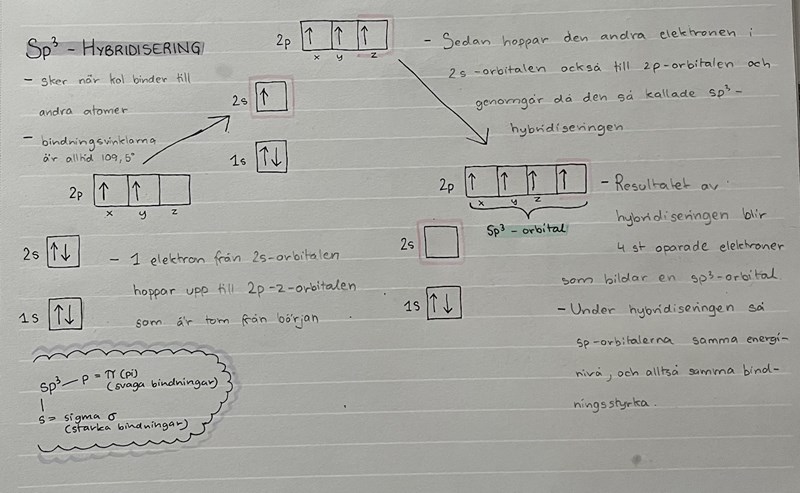 Sp³ - HYBRIDISERING
- sker när kol binder till
andra atomer
- bindningsvinklarna
är alltid 109,5°
2p
x y z
2s
1s
- 1 elektron från 2s-orbitalen
hoppar upp till 2p-z-orbitalen
som är tom från början
2p
x y z
2s
1s
- Sedan hoppar den andra elektronen i
2s-orbitalen också till 2p-orbitalen och
genomgår då den så kallade sp³-
hybridiseringen
2p
x y z
Sp³-orbital
2s
1s
- Resultatet av
hybridiseringen blir
4 st oparade elektroner
som bildar en sp³-orbital
- Under hybridiseringen så
sp-orbitalerna samma energi-
nivå, och alltså samma bind-
ningsstyrka.
sp³ — p = π (pi)
(svaga bindningar)
s = sigma σ
(starka bindningar)